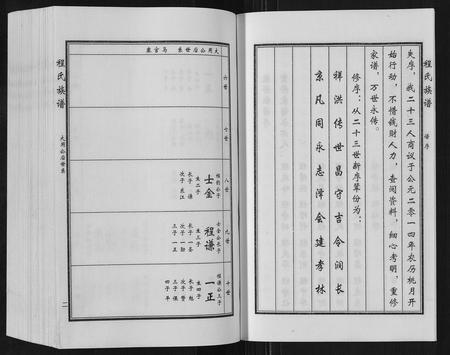 程氏族谱
谱序
失序，我二十三人商议于公元二零一四年农历桃月开
始行动，不惜钱财人力，查阅资料，细心考明，重修
家谱，万世永传。
修序：从二十三世新序辈份为：
祥洪传世昌守吉令润长
京凡同永志泽会建孝林
大用公后世系
六世
七世
八世
士金
生二子
长子 谦
九世
程谦
士金公长子
生三子
长子 一
次子 一
三子 一正
十世
一正
程谦公三子
生四子
长子
次子
三子
四子
程氏族谱
大用公后世系
二